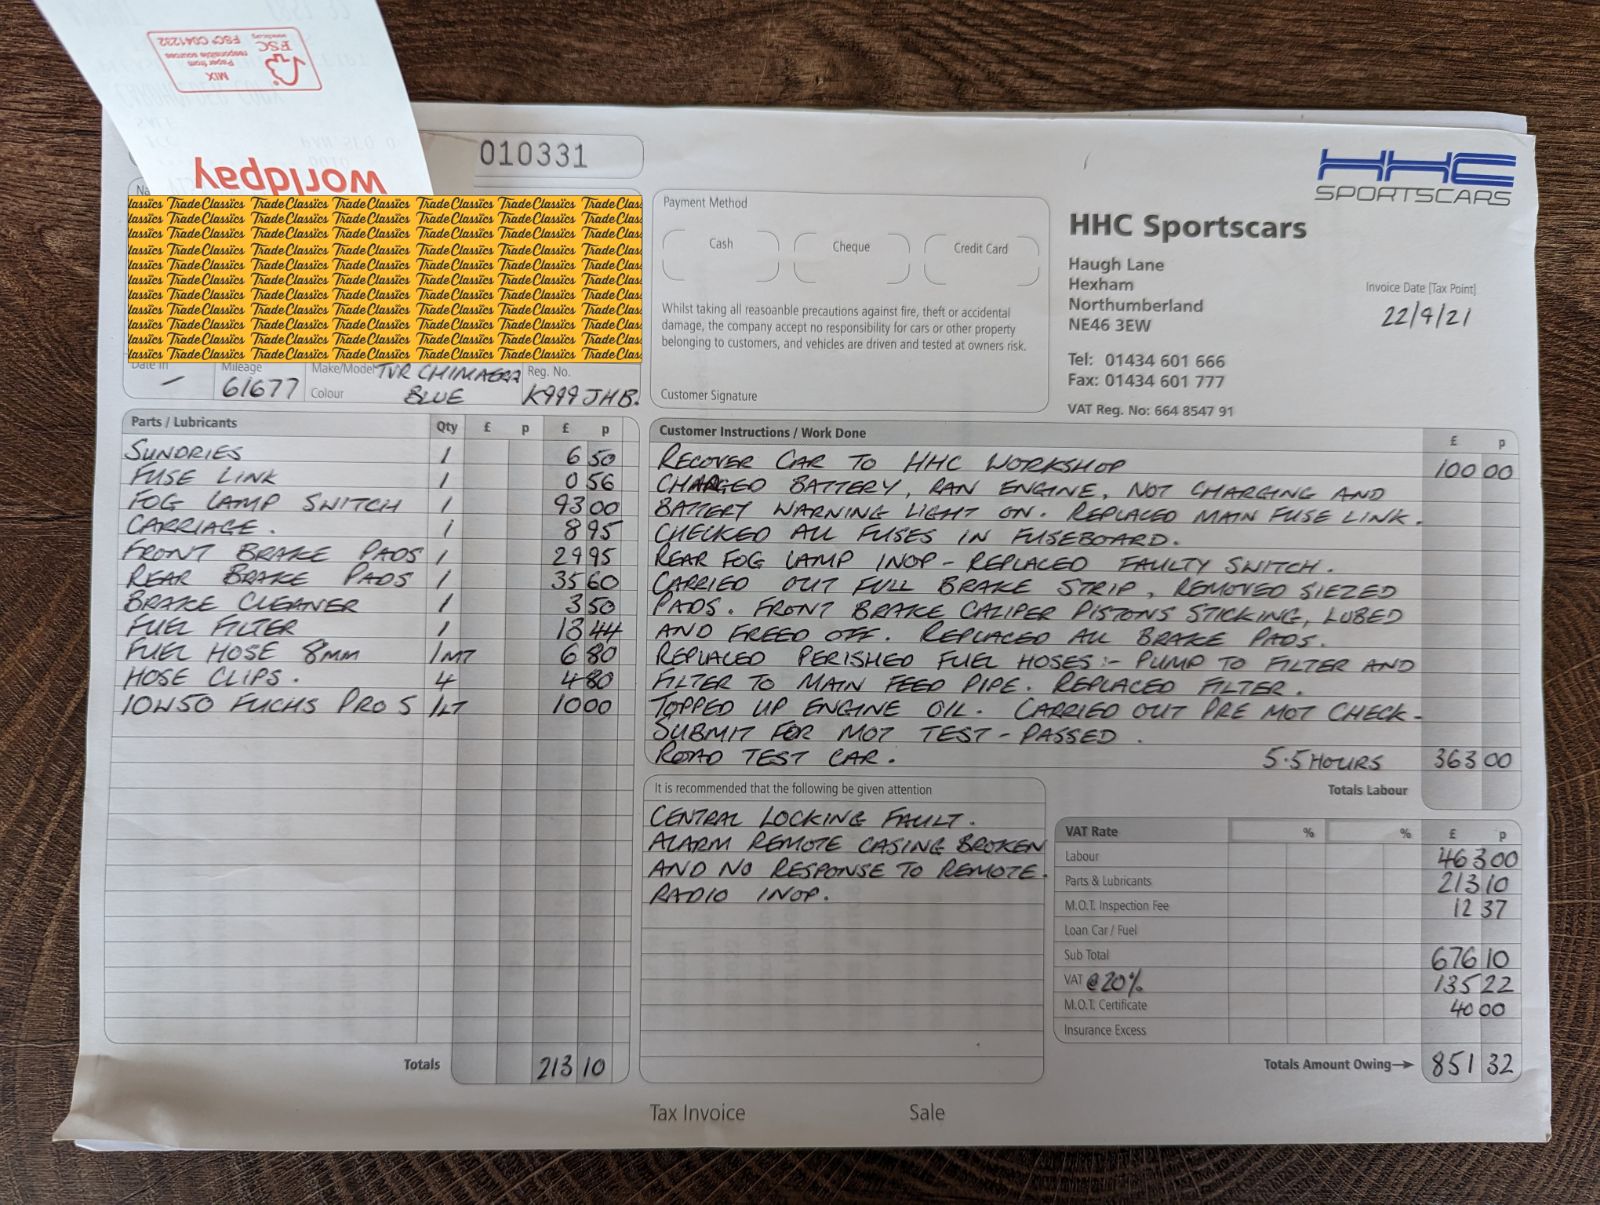 MIX
Paper from
responsible sources
FSC® C041232
FSC
worldpay
010331
HHC
SPORTSCARS
Trade Classics
Payment Method
Cash
Cheque
Credit Card
Whilst taking all reasoanble precautions against fire, theft or accidental
damage, the company accept no responsibility for cars or other property
belonging to customers, and vehicles are driven and tested at owners risk.
Customer Signature
HHC Sportscars
Haugh Lane
Hexham
Northumberland
NE46 3EW
Tel: 01434 601 666
Fax: 01434 601 777
VAT Reg. No: 664 8547 91
Invoice Date [Tax Point]
22/9/21
Date In
Mileage 61677
Make/Model TVR CHIMAERA
Colour BLUE
Reg. No. K999 JHB.
Parts / Lubricants Qty £ p £ p
SUNDRIES 1 6 50
FUSE LINK 1 0 56
FOG LAMP SWITCH 1 93 00
CARRIAGE. 1 8 95
FRONT BRAKE PADS 1 29 95
REAR BRAKE PADS 1 35 60
BRAKE CLEANER 1 3 50
FUEL FILTER 1 13 44
FUEL HOSE 8MM 1MT 6 80
HOSE CLIPS. 4 4 80
10W50 FUCHS PRO S 1LT 10 00
Totals 213 10
Customer Instructions / Work Done £ p
RECOVER CAR TO HHC WORKSHOP 100 00
CHARGED BATTERY, RAN ENGINE, NOT CHARGING AND
BATTERY WARNING LIGHT ON. REPLACED MAIN FUSE LINK.
CHECKED ALL FUSES IN FUSEBOARD.
REAR FOG LAMP INOP - REPLACED FAULTY SWITCH.
CARRIED OUT FULL BRAKE STRIP, REMOVED SIEZED
PADS. FRONT BRAKE CALIPER PISTONS STICKING, LUBED
AND FREED OFF. REPLACED ALL BRAKE PADS.
REPLACED PERISHED FUEL HOSES:- PUMP TO FILTER AND
FILTER TO MAIN FEED PIPE. REPLACED FILTER.
TOPPED UP ENGINE OIL. CARRIED OUT PRE MOT CHECK-
SUBMIT FOR MOT TEST - PASSED.
ROAD TEST CAR. 5.5 HOURS 363 00
Totals Labour
It is recommended that the following be given attention
CENTRAL LOCKING FAULT.
ALARM REMOTE CASING BROKEN
AND NO RESPONSE TO REMOTE.
RADIO INOP.
VAT Rate % % £ p
Labour 463 00
Parts & Lubricants 213 10
M.O.T. Inspection Fee 12 37
Loan Car / Fuel
Sub Total 676 10
VAT @20% 135 22
M.O.T. Certificate 40 00
Insurance Excess
Totals Amount Owing→ 851 32
Tax Invoice
Sale